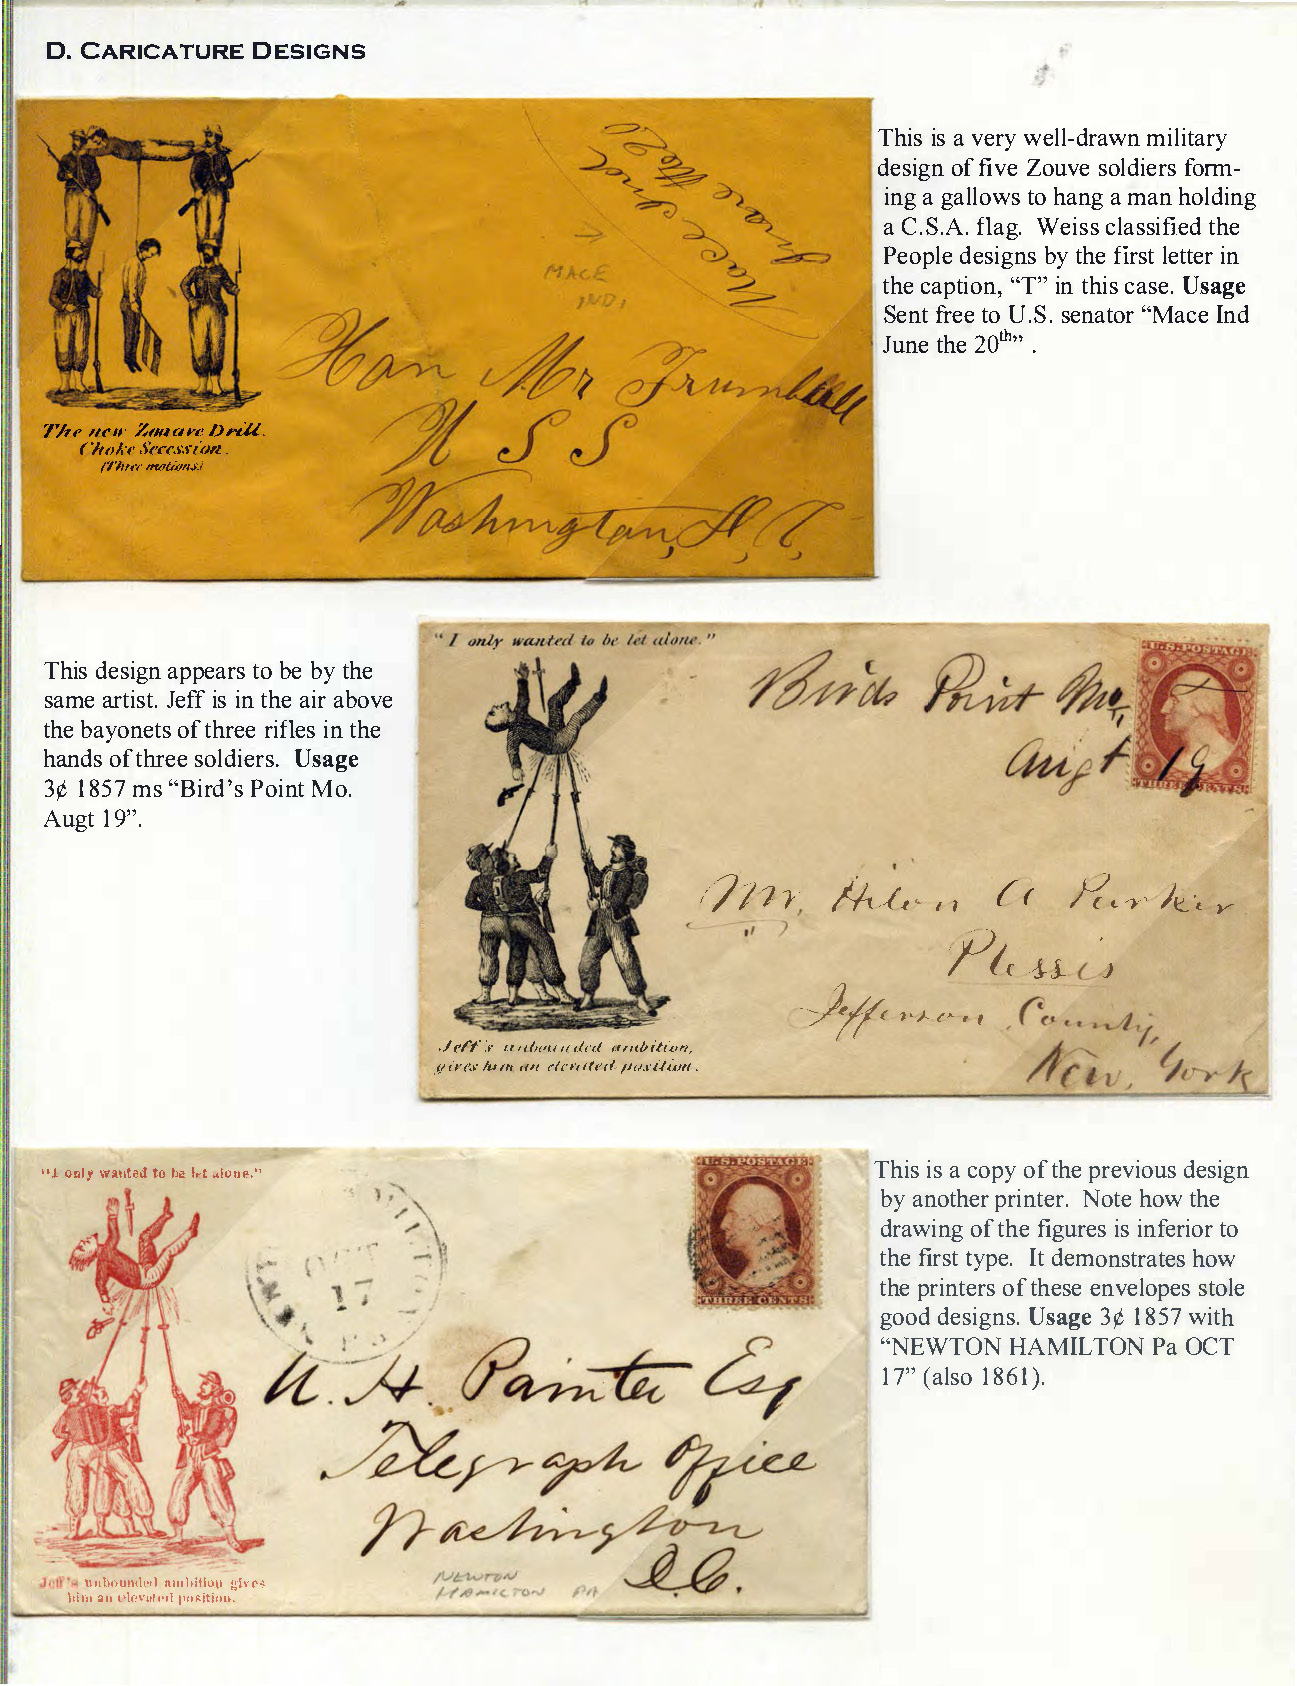 D. CARICATURE DESIGNS
Mace Ind
June the 20
MACE
IND,
Hon Mr Trumbull
U S S
Washington, D, C,
The new Zouave Drill.
Choke Secession.
(Three motions.)
This is a very well-drawn military
design of five Zouve soldiers form-
ing a gallows to hang a man holding
a C.S.A. flag. Weiss classified the
People designs by the first letter in
the caption, “T” in this case. Usage
Sent free to U.S. senator “Mace Ind
June the 20th” .
This design appears to be by the
same artist. Jeff is in the air above
the bayonets of three rifles in the
hands of three soldiers. Usage
3¢ 1857 ms “Bird’s Point Mo.
Augt 19”.
“I only wanted to be let alone.”
Birds Point Mo,
Augt 19
U.S. POSTAGE
THREE CENTS
Mr, Hilon A Parker
Plessis
Jefferson County,
New, York
Jeff's unbounded ambition,
gives him an elevated position.
"I only wanted to be let alone."
OCT
17
U.S. POSTAGE
THREE CENTS
U. H. Painter Esq
Telegraph Office
Washington
D.C.
NEWTON
HAMILTON PA
Jeff's unbounded ambition gives
him an elevated position.
This is a copy of the previous design
by another printer. Note how the
drawing of the figures is inferior to
the first type. It demonstrates how
the printers of these envelopes stole
good designs. Usage 3¢ 1857 with
“NEWTON HAMILTON Pa OCT
17” (also 1861).